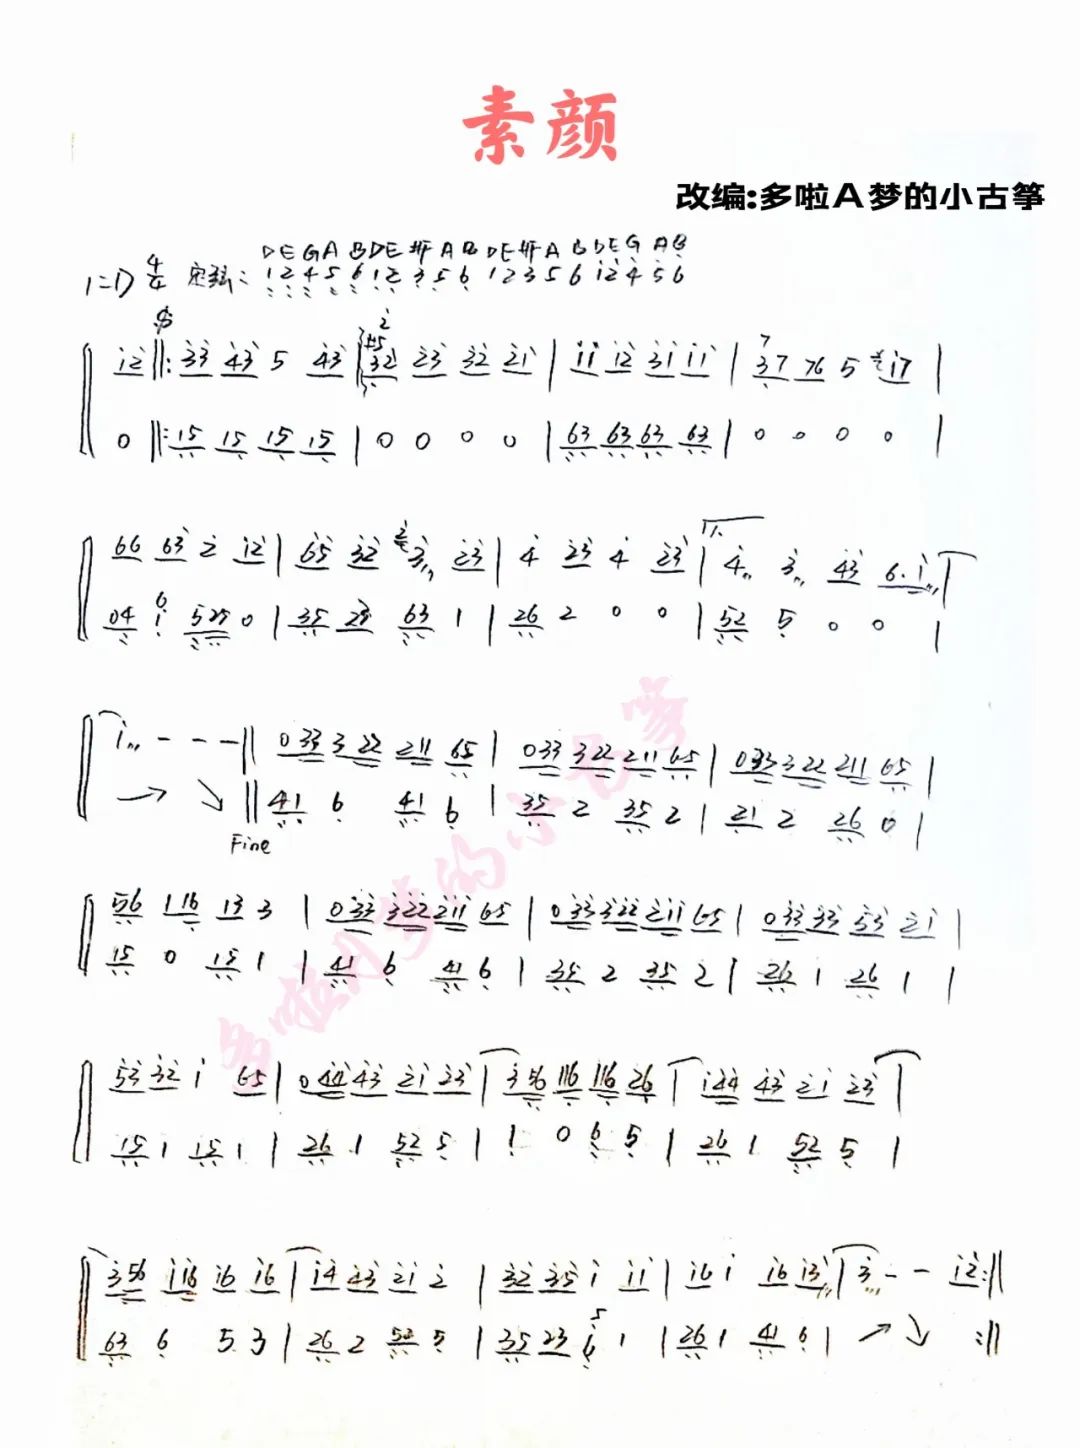 素颜
改编:多啦A梦的小古筝
D E G A B D E #F A B D E #F A B D E G A B
1=D 4/4 定弦: 1 2 4 5 6 1 2 3 5 6 1 2 3 5 6 1 2 4 5 6
12 ‖: 33 43 5 43 | 32 23 32 21 | 11 12 31 11 | 37 76 5 17 |
0 ‖: 15 15 15 15 | 0 0 0 0 | 63 63 63 63 | 0 0 0 0 |
66 63 2 12 | 65 32 3 23 | 4 23 4 23 | 4 3 43 6. 1
04 1 525 0 | 35 25 63 1 | 26 2 0 0 | 52 5 0 0 |
1 - - - ‖ 033 3 22 211 65 | 033 322 211 65 | 033 322 211 65 |
→ ↘ ‖ 41 6 41 6 | 35 2 35 2 | 21 2 26 0 |
Fine
56 1 16 13 3 | 033 322 211 65 | 033 322 211 65 | 033 33 53 21 |
15 0 15 1 | 41 6 41 6 | 35 2 35 2 | 26 1 26 1 |
53 32 1 65 | 044 43 21 23 | 356 116 116 26 | 144 43 21 23 |
15 1 15 1 | 26 1 52 5 | 1 0 6 5 | 26 1 52 5 |
356 116 16 16 | 14 43 21 2 | 32 35 1 11 | 16 1 16 13 | 3 - - 12 :‖
63 6 5. 3 | 26 2 52 5 | 35 23 6 1 | 26 1 41 6 | ↗ ↘ :‖
多啦A梦的小古筝